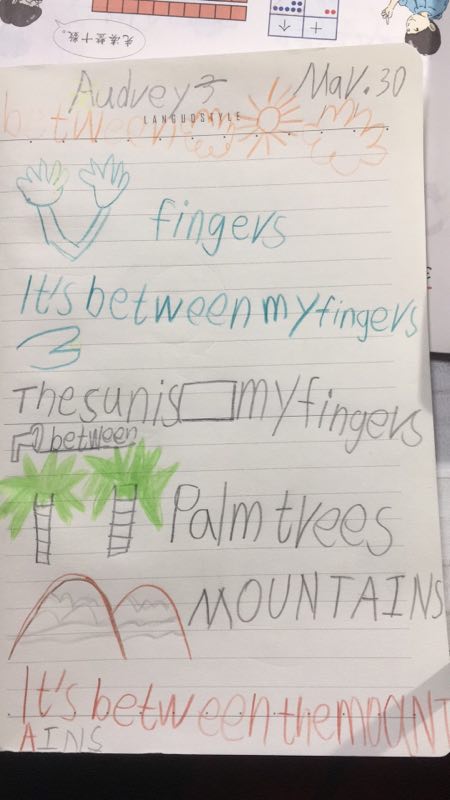 先凑整十数。
Audrey Mar.30
LANGUOSTYLE
between
fingers
It's between my fingers
The sun is my fingers
between
Palm trees
MOUNTAINS
It's between the MOUNT
AINS